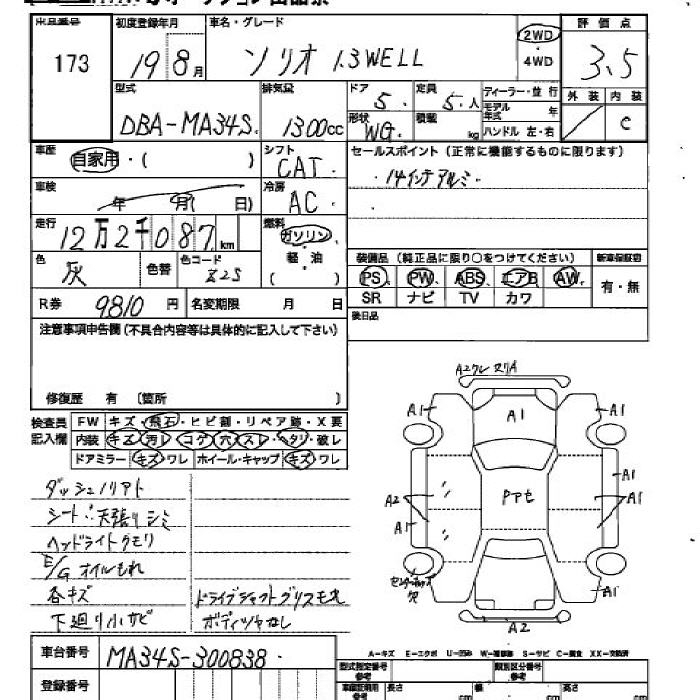 出品番号 初度登録年月 車名・グレード 2WD 評価点
173 19 8月 ソリオ 1.3WELL 4WD 3.5
型式 排気量 ドア 5. 定員 5.人 ディーラー・並行 外装 内装
DBA-MA34S. 1300cc 形状 WG. 積載 kg モデル年式 年 C
ハンドル 左・右
車歴 自家用・( ) シフト CAT. セールスポイント(正常に機能するものに限ります)
車検 年 月( 日) 冷房 AC. ・14インチアルミ・
走行 12万2千087km 燃料 ガソリン・軽・油( )
色 灰 色替 色コード Z2S 装備品(純正品に限り○をつけてください) 新車保証書
PS PW ABS エアB AW 有・無
R券 9810円 名変期限 月 日 SR ナビ TV カワ
注意事項申告欄(不具合内容等は具体的に記入して下さい) 後日品
修復歴 有 〔箇所 〕
A1
A1 A1 A1
検査員記入欄 FW キズ・飛石・ヒビ割・リペア跡・X要
内装 キズ・汚レ・コゲ・穴・スレ・ヘタリ・破レ
ドアミラー キズ・ワレ ホイール・キャップ キズ・ワレ
A1
A2 A1
A1
ダッシュノリアト
シート・天張りシミ
ヘッドライトクモリ
E/Gオイルもれ
各キズ ドライブシャフトグリスモレ
下廻り小サビ ボディツヤなし
A1
A2
車台番号 MA34S-300838.
A-キズ E-エクボ U-凹み W-補修跡 S-サビ C-腐食 XX-交換済
登録番号 型式指定番号 参考 類別区分番号 参考
長さ cm 幅 cm 高さ cm